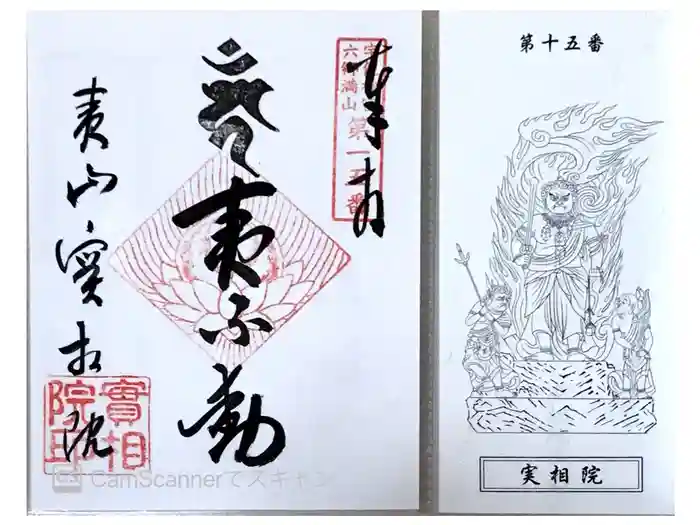 奉拝
宇佐神宮
六郷満山
第一五番
夷不動
夷山実相院
實相
院印
CamScannerでスキャン
第十五番
実相院